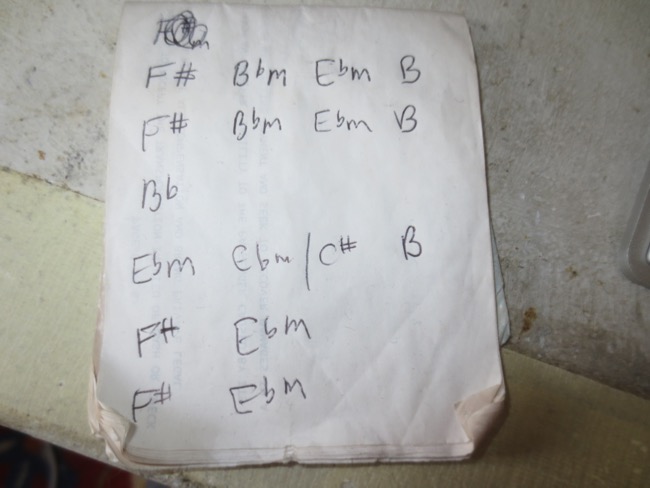 F# Bbm Ebm B
F# Bbm Ebm B
Bb
Ebm Ebm/C# B
F# Ebm
F# Ebm